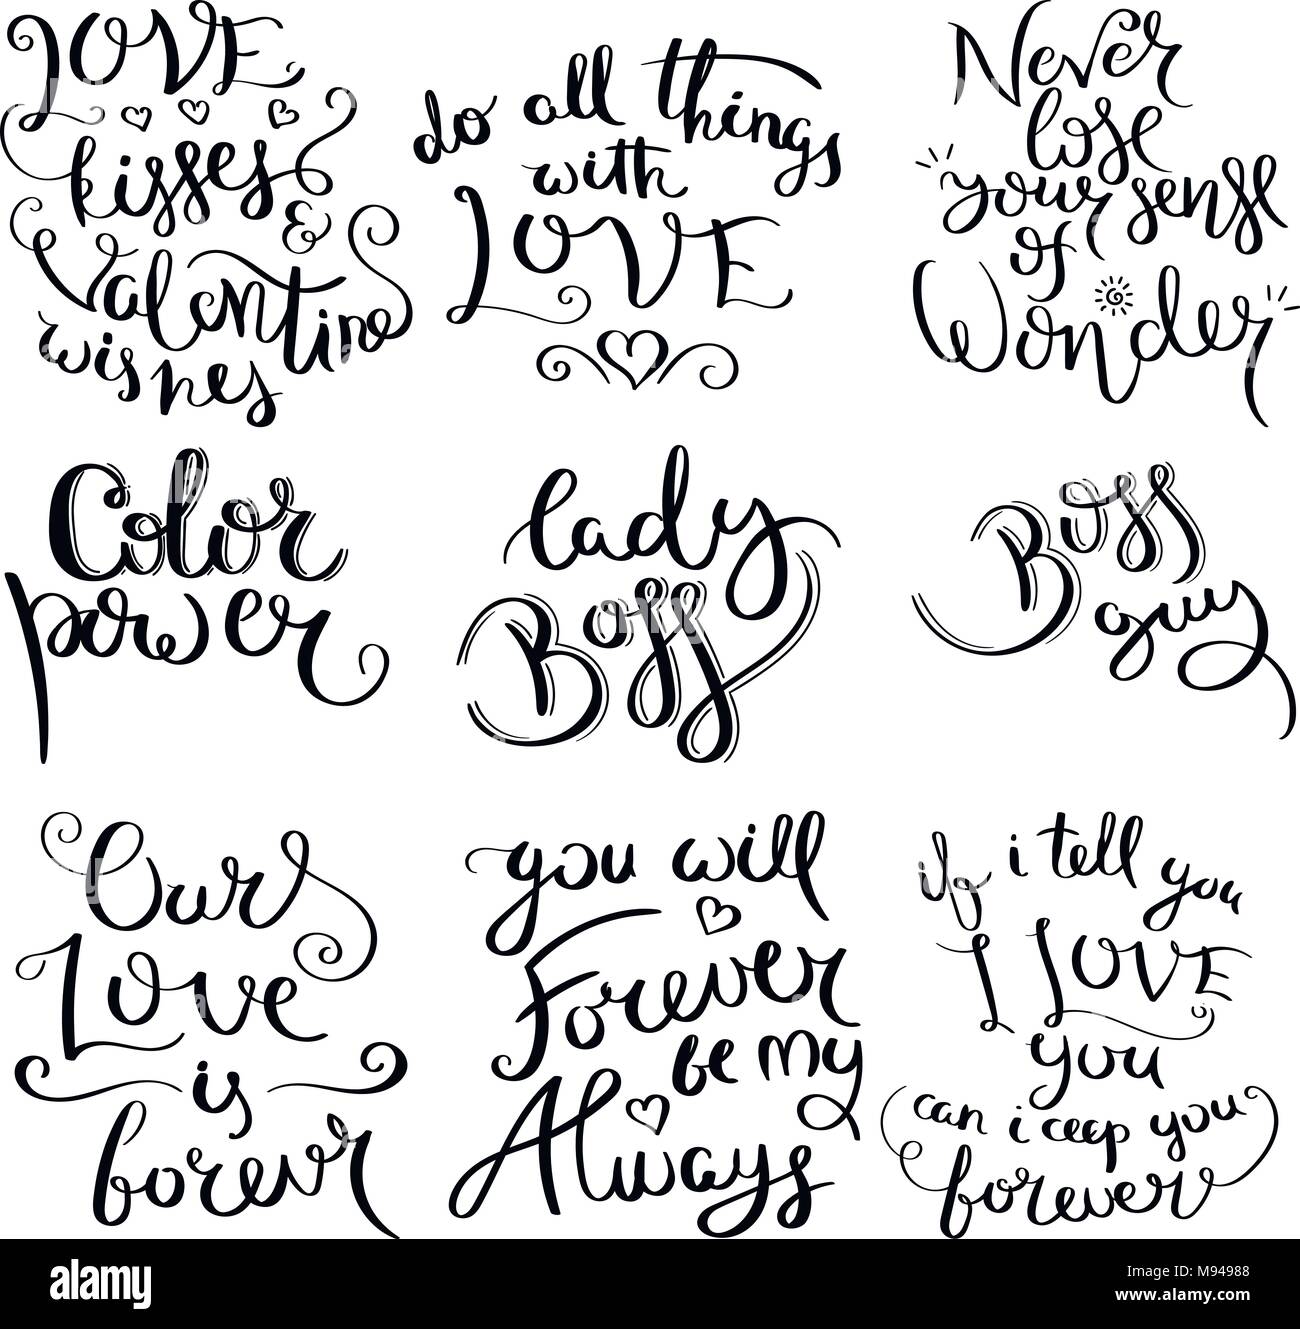 LOVE
kisses
&
Valentine
wishes
do all things
with
LOVE
Never
lose
your sense
of
Wonder
Color
power
lady
Boss
Boss
guy
Our
Love
is
forevr
you will
Forever
be my
Always
if i tell you
I LOVE
you
can i ceep you
forever
alamy
Image ID: M94988
www.alamy.com